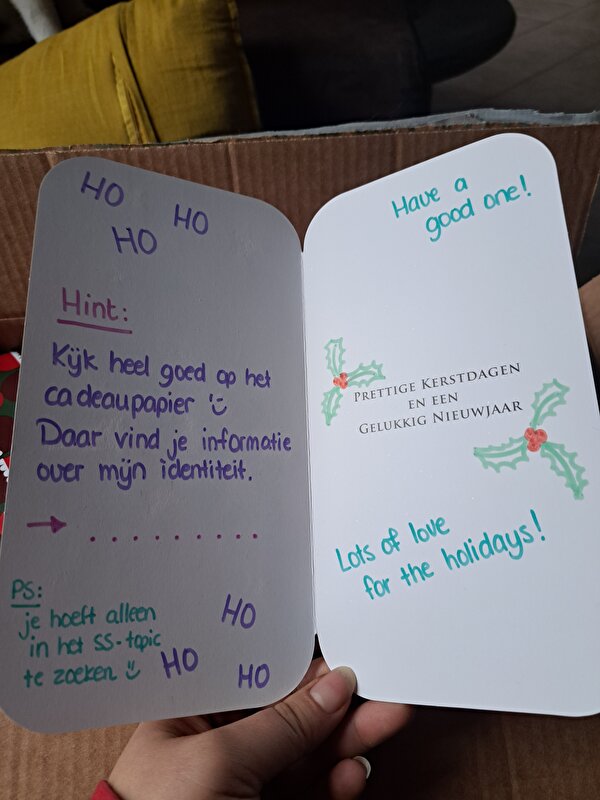 HO
HO
HO
Hint:
Kijk heel goed op het
cadeaupapier
Daar vind je informatie
over mijn identiteit.
→ .........
PS:
je hoeft alleen
in het SS-topic
te zoeken
HO
HO
HO
Have a
good one!
Prettige Kerstdagen
en een
Gelukkig Nieuwjaar
Lots of love
for the holidays!